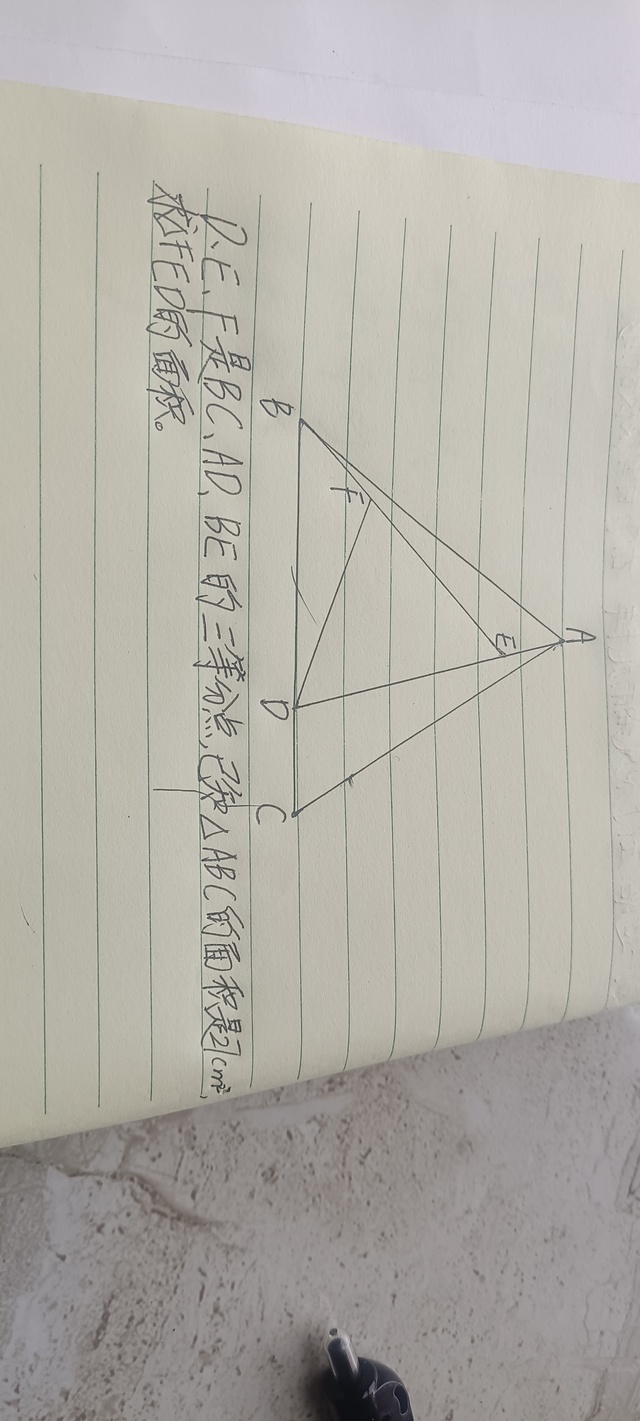 A
E
F
B
D
C
D、E、F是BC、AD、BE的三等分点,已知△ABC的面积是27cm²,
求FED的面积。